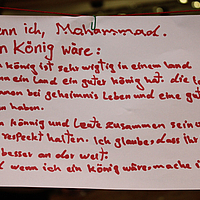 enn ich, Mohammad.
n König wäre:
könig ist sehr wigtig in einem land
nn ein land ein guter könig hat. die le
nnen bei geheimnis leben und eine gut
n haben.
n könig und leute zusammen sein u
respekt halten. Ich glaube, dass ihr
besser an der welt.
d wenn ich ein könig wäre, mache i